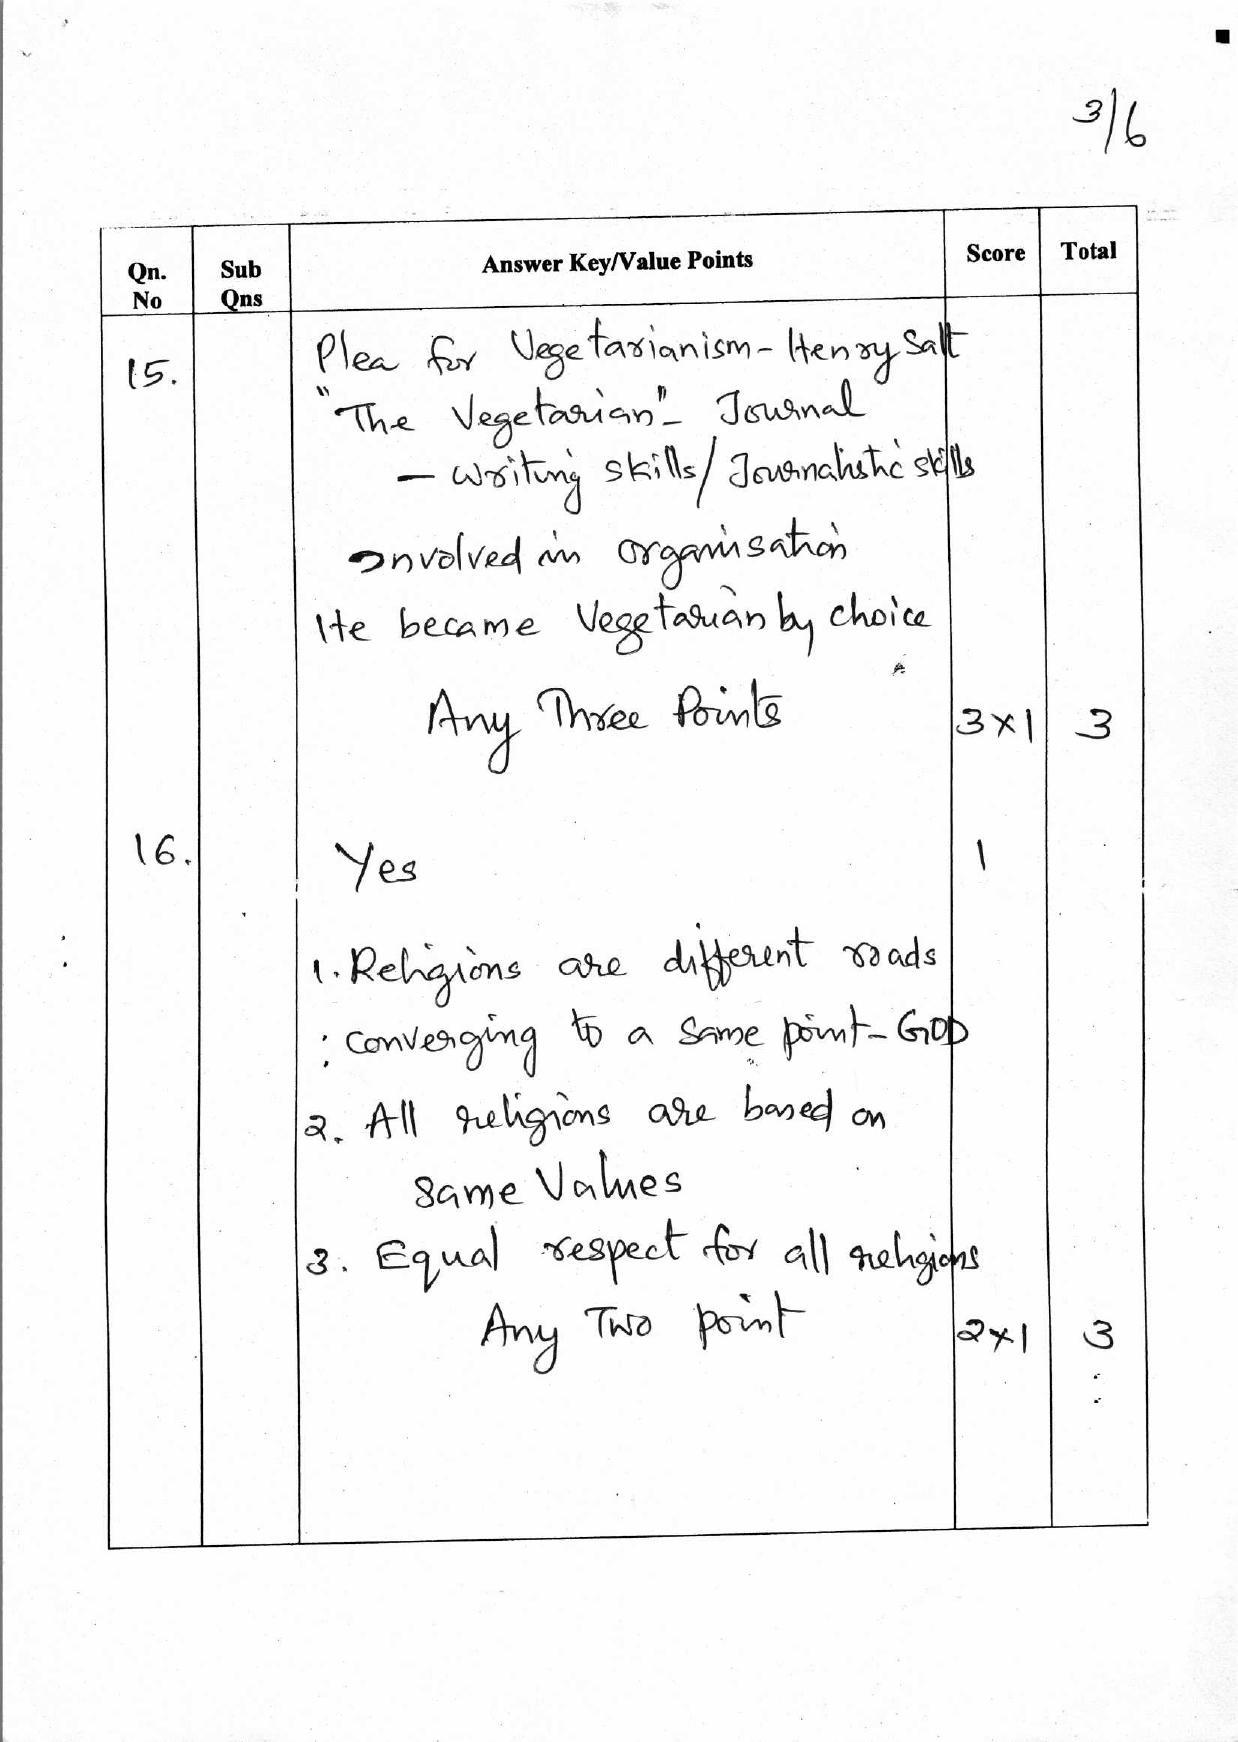 3/6
Qn. No
Sub Qns
Answer Key/Value Points
Score
Total
15.
Plea for Vegetarianism - Henry Salt
"The Vegetarian" - Journal
- writing skills/Journalistic skills
Involved in organisation
He became Vegetarian by choice
Any Three Points 3×1 3
16. Yes 1
1. Religions are different roads
converging to a same point - GOD
2. All religions are based on
same Values
3. Equal respect for all religions
Any Two point 2×1 3